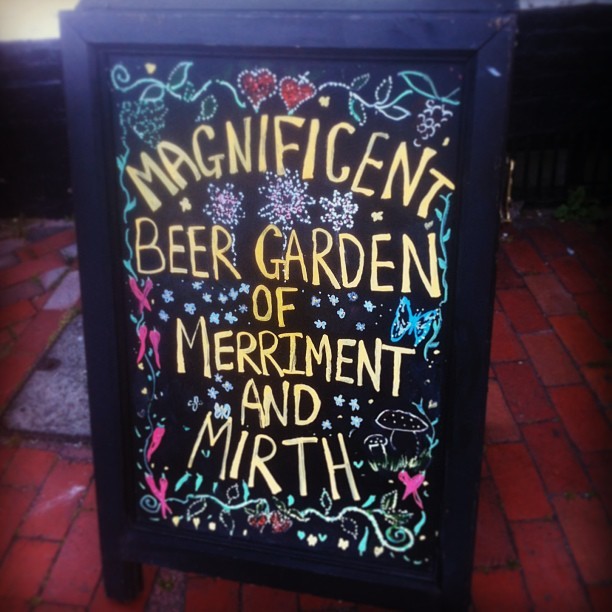 MAGNIFICENT
BEER GARDEN
OF
MERRIMENT
AND
MIRTH